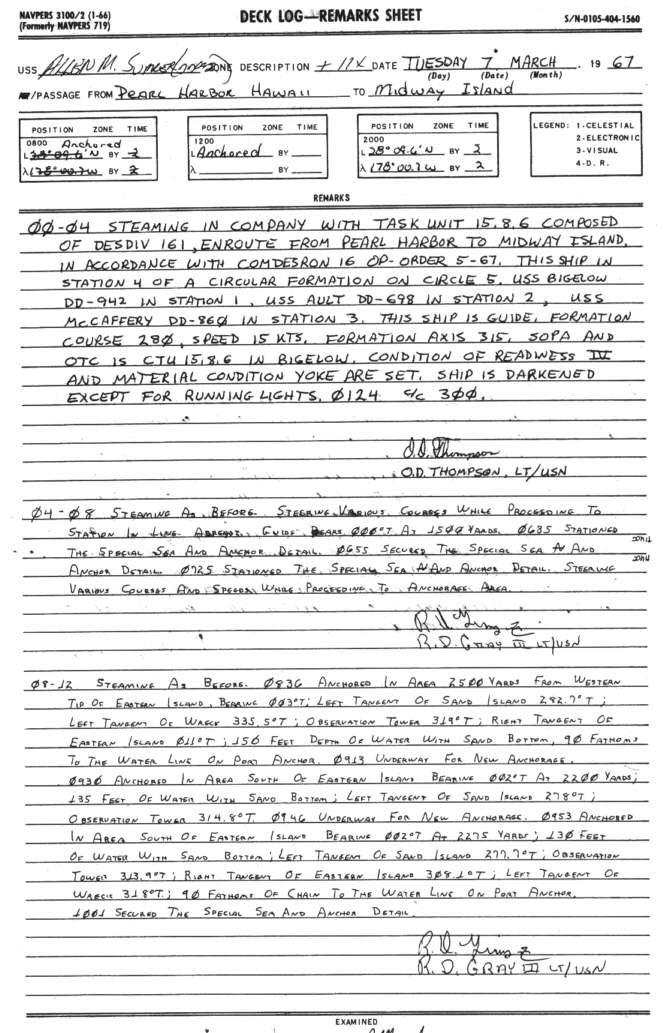 NAVPERS 3100/2 (1-66)
(Formerly NAVPERS 719)
DECK LOG—REMARKS SHEET
S/N-0105-404-1560
USS ALLEN M. SUMNER ZONE DESCRIPTION + 11X DATE TUESDAY 7 MARCH, 19 67
(Day) (Date) (Month)
/PASSAGE FROM PEARL HARBOR HAWAII TO MIDWAY ISLAND
POSITION ZONE TIME
0800 Anchored
L 28° 09.6'N BY 2
λ 178° 00.7W BY 2
POSITION ZONE TIME
1200
L Anchored BY
λ BY
POSITION ZONE TIME
2000
L 28° 09.6'N BY 2
λ 178° 00.7W BY 2
LEGEND: 1-CELESTIAL
2-ELECTRONIC
3-VISUAL
4-D. R.
REMARKS
00-04 STEAMING IN COMPANY WITH TASK UNIT 15.8.6 COMPOSED
OF DESDIV 161, ENROUTE FROM PEARL HARBOR TO MIDWAY ISLAND,
IN ACCORDANCE WITH COMDESRON 16 OP-ORDER 5-67. THIS SHIP IN
STATION 4 OF A CIRCULAR FORMATION ON CIRCLE 5. USS BIGELOW
DD-942 IN STATION 1, USS AULT DD-698 IN STATION 2, USS
McCAFFERY DD-860 IN STATION 3. THIS SHIP IS GUIDE, FORMATION
COURSE 280, SPEED 15 KTS. FORMATION AXIS 315. SOPA AND
OTC IS CTU 15.8.6 IN BIGELOW. CONDITION OF READINESS IV
AND MATERIAL CONDITION YOKE ARE SET. SHIP IS DARKENED
EXCEPT FOR RUNNING LIGHTS. 0124 c/c 300.
O.D. Thompson
O.D. THOMPSON, LT/USN
04-08 STEAMING AS BEFORE. STEERING VARIOUS COURSES WHILE PROCEEDING TO
STATION IN LINE ABREAST. GUIDE BEARS 000°T AT 1500 YARDS. 0635 STATIONED
THE SPECIAL SEA AND ANCHOR DETAIL. 0655 SECURED THE SPECIAL SEA AND
ANCHOR DETAIL. 0725 STATIONED THE SPECIAL SEA AND ANCHOR DETAIL. STEERING
VARIOUS COURSES AND SPEEDS WHILE PROCEEDING TO ANCHORAGE AREA.
R. D. GRAY III LT/USN
08-12 STEAMING AS BEFORE. 0836 ANCHORED IN AREA 2500 YARDS FROM WESTERN
TIP OF EASTERN ISLAND, BEARING 003°T; LEFT TANGENT OF SAND ISLAND 282.7°T;
LEFT TANGENT OF WRECK 335.5°T; OBSERVATION TOWER 319°T; RIGHT TANGENT OF
EASTERN ISLAND 011°T; 150 FEET DEPTH OF WATER WITH SAND BOTTOM, 90 FATHOMS
TO THE WATER LINE ON PORT ANCHOR. 0913 UNDERWAY FOR NEW ANCHORAGE.
0930 ANCHORED IN AREA SOUTH OF EASTERN ISLAND BEARING 002°T AT 2200 YARDS;
135 FEET OF WATER WITH SAND BOTTOM; LEFT TANGENT OF SAND ISLAND 278°T;
OBSERVATION TOWER 314.8°T. 0946 UNDERWAY FOR NEW ANCHORAGE. 0953 ANCHORED
IN AREA SOUTH OF EASTERN ISLAND BEARING 002°T AT 2275 YARDS; 130 FEET
OF WATER WITH SAND BOTTOM; LEFT TANGENT OF SAND ISLAND 277.7°T; OBSERVATION
TOWER 313.9°T; RIGHT TANGENT OF EASTERN ISLAND 308.1°T; LEFT TANGENT OF
WRECK 318°T; 90 FATHOMS OF CHAIN TO THE WATER LINE ON PORT ANCHOR.
1001 SECURED THE SPECIAL SEA AND ANCHOR DETAIL.
R. D. GRAY III LT/USN
EXAMINED